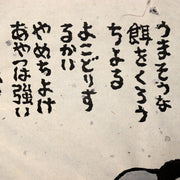 うまそうな
餌をくろう
ちよる
よこどりす
るかい
やめちょけ
あやつは強い